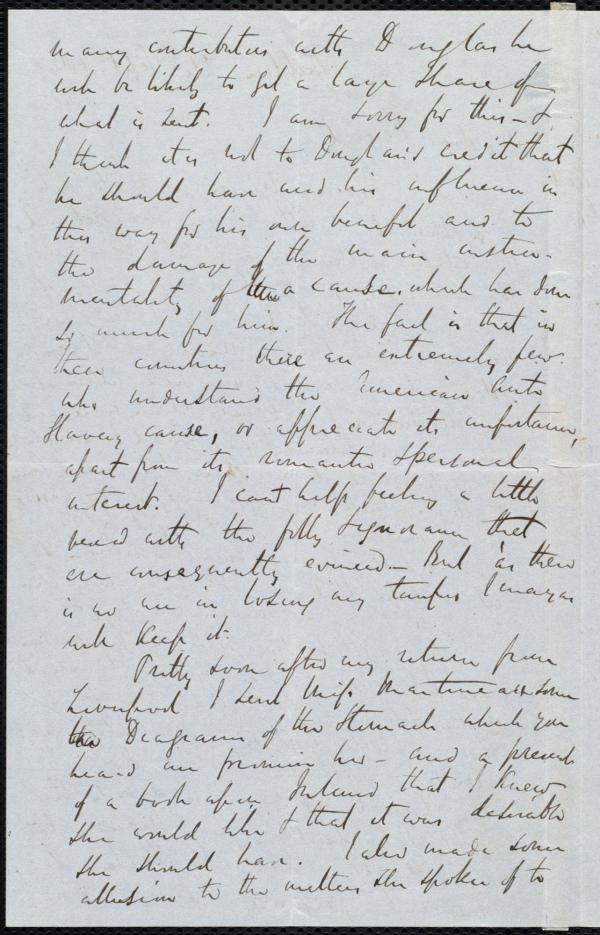 many contributors with Douglas he
will be likely to get a large share of
what is sent. I am sorry for this - &
I think it is not to Douglas's credit that
he should have used his influence in
this way for his own benefit and to
the damage of the main instru-
mentality of the a cause which has done
so much for him. The fact is that in
these countries there are extremely few
who understand the American Anti
Slavery cause, or appreciate its importance,
apart from its romantic & personal
interest. I cant help feeling a little
vexed with the folly & ignorance that
are consequently evinced - But as there
is no use in losing my temper I may as
well keep it -
Pretty soon after my return from
Liverpool I sent Miss Martineau some
the Diagrams of the Stomach which you
heard me promise her - and a present
of a book upon Ireland that I knew
she would like & that it was desirable
she should have. I also made some
allusion to the matters she spoke of to